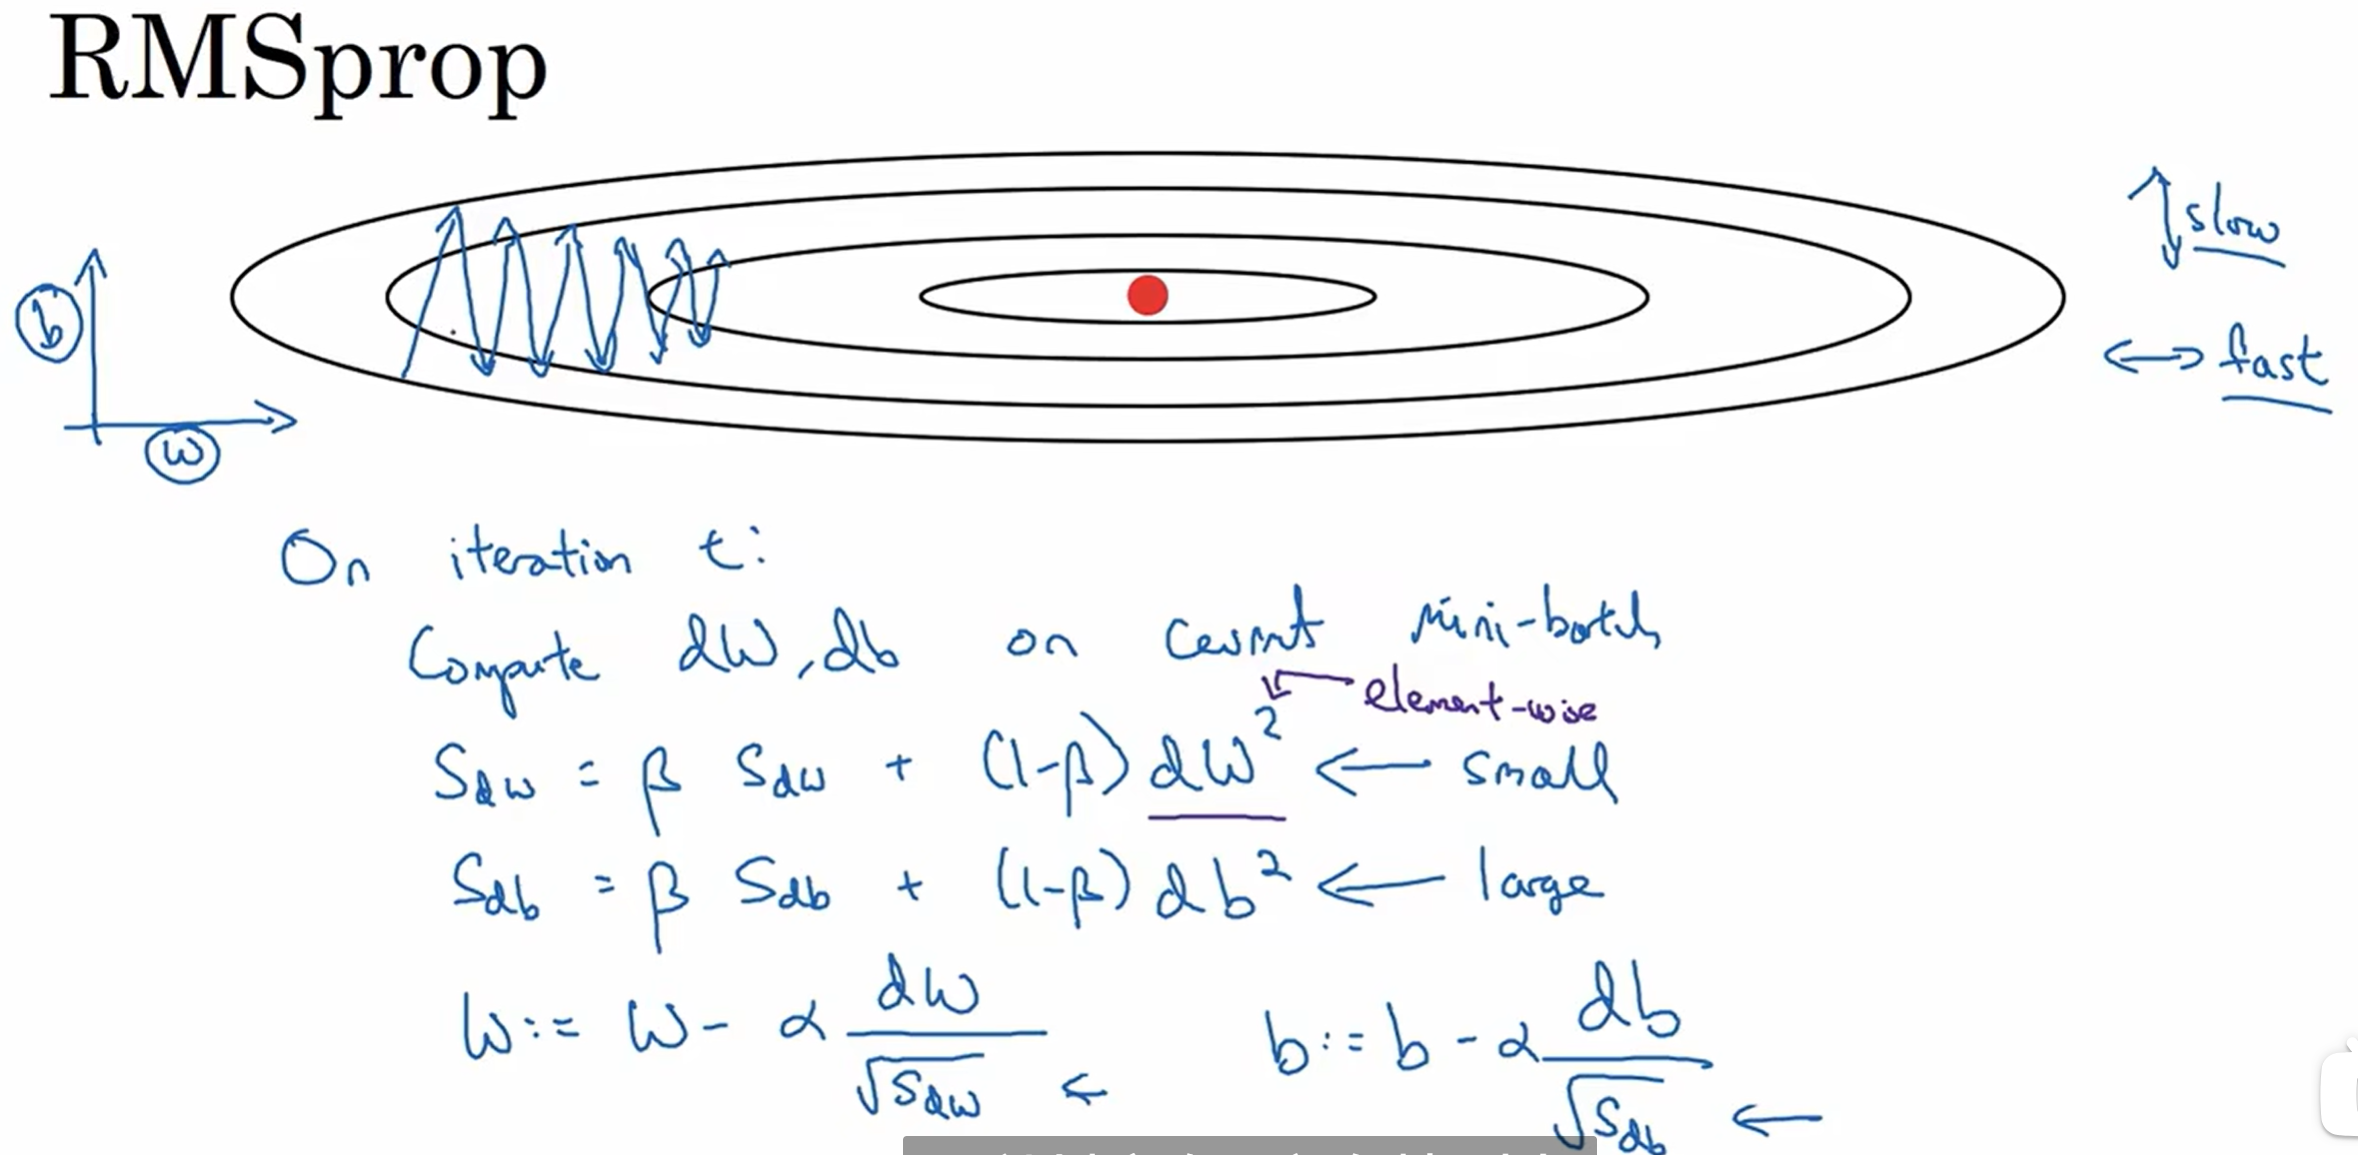 RMSprop
slow
b
fast
w
On iteration t:
Compute dW, db on current mini-batch
element-wise
Sdw = β Sdw + (1-β) dW² ← small
Sdb = β Sdb + (1-β) db² ← large
W := W - α dW/√Sdw ← b := b - α db/√Sdb ←